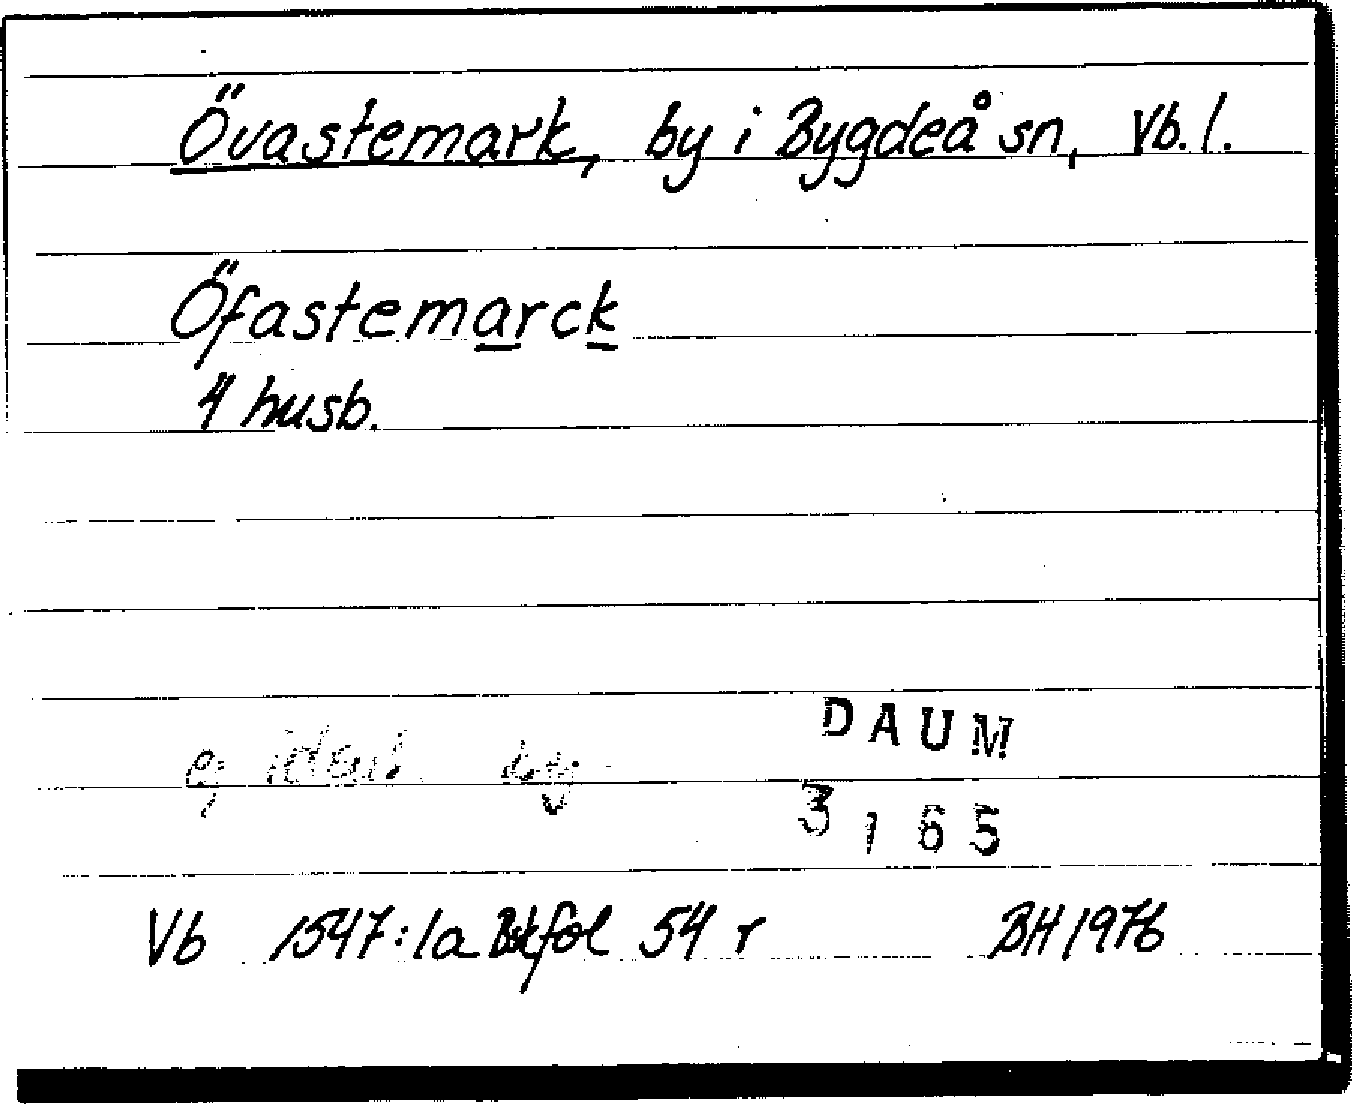 Övastemark, by i Bygdeå sn, Vb. l.
Öfastemarck
4 husb.
DAUM
ej ident. by
3165
Vb 1547:1a Bkfol 54 r BH 1976